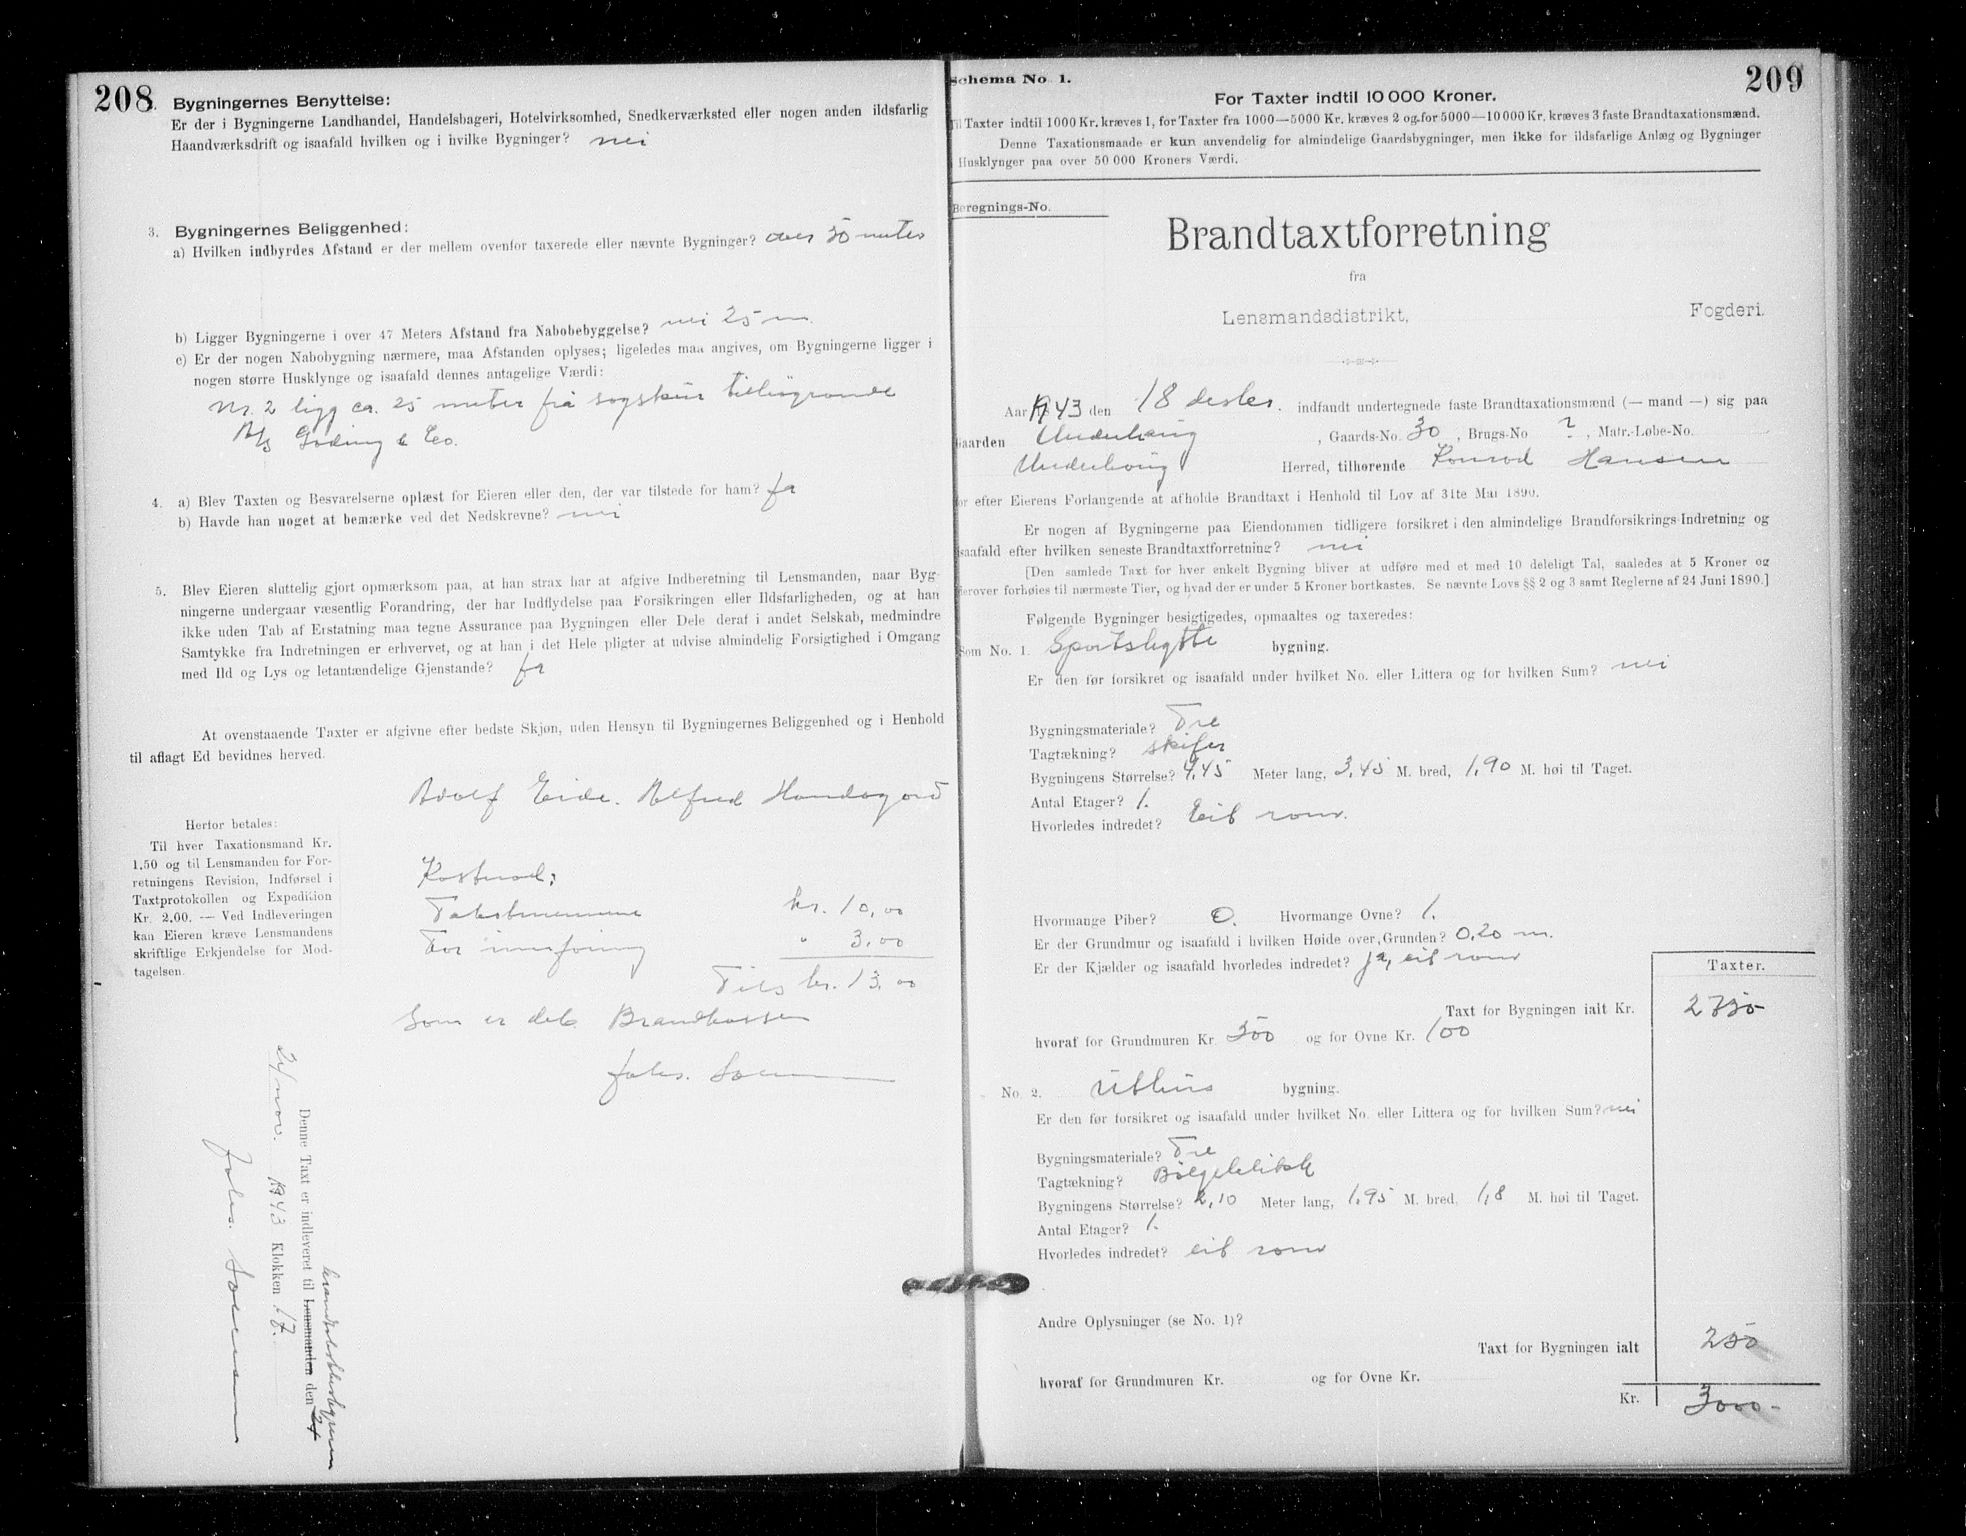 208.
Bygningernes Benyttelse:
Er der i Bygningerne Landhandel, Handelsbageri, Hotelvirksomhed, Snedkerværksted eller nogen anden ildsfarlig
Haandværksdrift og isaafald hvilken og i hvilke Bygninger? nei
3. Bygningernes Beliggenhed:
a) Hvilken indbyrdes Afstand er der mellem ovenfor taxerede eller nævnte Bygninger? over 50 meter
b) Ligger Bygningerne i over 47 Meters Afstand fra Nabobebyggelse? nei 25 m
c) Er der nogen Nabobygning nærmere, maa Afstanden oplyses; ligeledes maa angives, om Bygningerne ligger i
nogen større Husklynge og isaafald dennes antagelige Værdi:
Nr. 2 ligg ca. 25 meter frå sagskur
A/S & Co.
4. a) Blev Taxten og Besvarelserne oplæst for Eieren eller den, der var tilstede for ham? Ja
b) Havde han noget at bemærke ved det Nedskrevne? nei
5. Blev Eieren sluttelig gjort opmærksom paa, at han strax har at afgive Indberetning til Lensmanden, naar Byg-
ningerne undergaar væsentlig Forandring, der har Indflydelse paa Forsikringen eller Ildsfarligheden, og at han
ikke uden Tab af Erstatning maa tegne Assurance paa Bygningen eller Dele deraf i andet Selskab, medmindre
Samtykke fra Indretningen er erhvervet, og at han i det Hele pligter at udvise almindelig Forsigtighed i Omgang
med Ild og Lys og letantændelige Gjenstande? Ja
At ovenstaaende Taxter er afgivne efter bedste Skjøn, uden Hensyn til Bygningernes Beliggenhed og i Henhold
til aflagt Ed bevidnes herved.
Adolf Eide. Alfred Handegard
Herfor betales:
Til hver Taxationsmand Kr.
1.50 og til Lensmanden for For-
retningens Revision, Indførsel i
Taxtprotokollen og Expedition
Kr. 2.00. — Ved Indleveringen
kan Eieren kræve Lensmandens
skriftlige Erkjendelse for Mod-
tagelsen.
Kostnad:
Takstmennene kr. 10,00
For innføring " 3,00
Tils kr. 13,00
Som er det Brandkassen
Johs.
Denne Taxt er indleveret til Lensmanden den
24/nov. 1943 Klokken 17.
Johs.
209
Schema No. 1.
For Taxter indtil 10 000 Kroner.
Til Taxter indtil 1000 Kr. kræves 1, for Taxter fra 1000—5000 Kr. kræves 2 og for 5000—10 000 Kr. kræves 3 faste Brandtaxationsmænd.
Denne Taxationsmaade er kun anvendelig for almindelige Gaardsbygninger, men ikke for ildsfarlige Anlæg og Bygninger
Husklynger paa over 50 000 Kroners Værdi.
Beregnings-No.
Brandtaxtforretning
fra
Lensmandsdistrikt, Fogderi.
Aar 1943 den 18 indfandt undertegnede faste Brandtaxationsmænd (— mand —) sig paa
Gaarden , Gaards-No. 30 , Brugs-No ? , Matr.-Løbe-No.
Herred, tilhørende Konrad Hansen
for efter Eierens Forlangende at afholde Brandtaxt i Henhold til Lov af 31te Mai 1890.
Er nogen af Bygningerne paa Eiendommen tidligere forsikret i den almindelige Brandforsikrings-Indretning og
isaafald efter hvilken seneste Brandtaxtforretning? nei
[Den samlede Taxt for hver enkelt Bygning bliver at udføre med et med 10 deleligt Tal, saaledes at 5 Kroner og
derover forhøies til nærmeste Tier, og hvad der er under 5 Kroner bortkastes. Se nævnte Lovs §§ 2 og 3 samt Reglerne af 24 Juni 1890.]
Følgende Bygninger besigtigedes, opmaaltes og taxeredes:
Som No. 1. Sportshytte bygning.
Er den før forsikret og isaafald under hvilket No. eller Littera og for hvilken Sum? nei
Bygningsmateriale? Tre
Tagtækning? skifer
Bygningens Størrelse? 4,45 Meter lang, 3,45 M. bred, 1,90 M. høi til Taget.
Antal Etager? 1.
Hvorledes indredet? Eit rom.
Hvormange Piber? 0. Hvormange Ovne? 1.
Er der Grundmur og isaafald i hvilken Høide over Grunden? 0,20 m.
Er der Kjælder og isaafald hvorledes indredet? ja, eit rom
Taxter.
Taxt for Bygningen ialt Kr. 2750-
hvoraf for Grundmuren Kr. 500 og for Ovne Kr. 100
No. 2. Uthus bygning.
Er den før forsikret og isaafald under hvilket No. eller Littera og for hvilken Sum? nei
Bygningsmateriale? Tre
Tagtækning? Bølgeblikk
Bygningens Størrelse? 2,10 Meter lang, 1,95 M. bred, 1,8 M. høi til Taget.
Antal Etager? 1.
Hvorledes indredet? eit rom
Andre Oplysninger (se No. 1)?
Taxt for Bygningen ialt 250
hvoraf for Grundmuren Kr. og for Ovne Kr.
Kr. 3000-